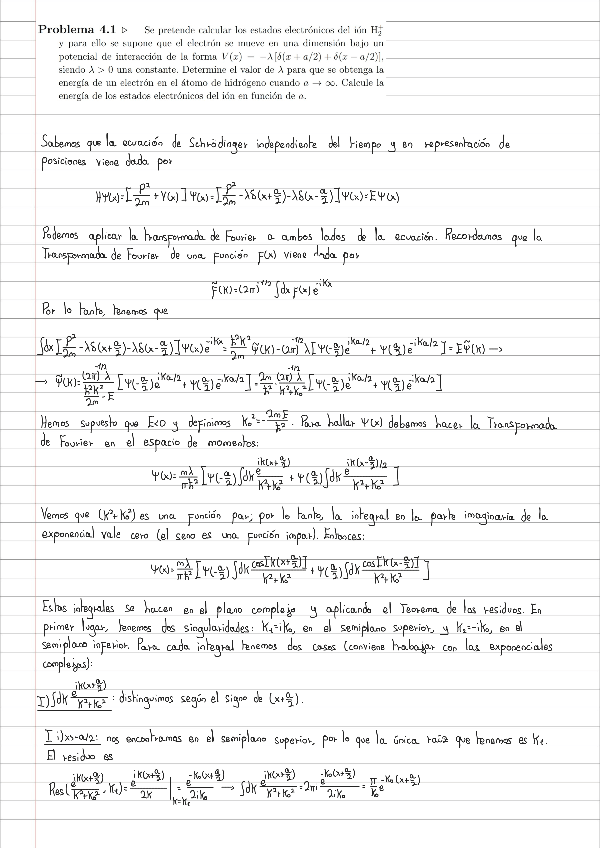 Problema 4.1 ▷ Se pretende calcular los estados electrónicos del ión H₂⁺
y para ello se supone que el electrón se mueve en una dimensión bajo un
potencial de interacción de la forma V(x) = −λ[δ(x + a/2) + δ(x − a/2)],
siendo λ > 0 una constante. Determine el valor de λ para que se obtenga la
energía de un electrón en el átomo de hidrógeno cuando a → ∞. Calcule la
energía de los estados electrónicos del ión en función de a.
Sabemos que la ecuación de Schrödinger independiente del tiempo y en representación de
posiciones viene dada por
Hψ(x)=[P²/2m + V(x)]ψ(x)=[P²/2m −λδ(x+a/2)−λδ(x−a/2)]ψ(x)=Eψ(x)
Podemos aplicar la transformada de Fourier a ambos lados de la ecuación. Recordamos que la
Transformada de Fourier de una función f(x) viene dada por
f̃(k)=(2π)^(-1/2) ∫dx f(x) e^(-ikx)
Por lo tanto, tenemos que
∫dx [P²/2m −λδ(x+a/2)−λδ(x−a/2)]ψ(x)e^(-ikx) = ħ²k²/2m ψ̃(k) −(2π)^(-1/2) λ[ψ(-a/2)e^(ika/2) + ψ(a/2)e^(-ika/2)] = Eψ̃(k) →
→ ψ̃(k)= (2π)^(-1/2) λ/(ħ²k²/2m − E) [ψ(-a/2)e^(ika/2) + ψ(a/2)e^(-ika/2)] = 2m/ħ² (2π)^(-1/2) λ/(k²+k₀²) [ψ(-a/2)e^(ika/2) + ψ(a/2)e^(-ika/2)]
Hemos supuesto que E<0 y definimos k₀²=−2mE/ħ². Para hallar ψ(x) debemos hacer la Transformada
de Fourier en el espacio de momentos:
ψ(x)= mλ/πħ² [ψ(-a/2)∫dk e^(ik(x+a/2))/(k²+k₀²) + ψ(a/2)∫dk e^(ik(x−a/2)/2)/(k²+k₀²)]
Vemos que (k²+k₀²) es una función par; por lo tanto, la integral en la parte imaginaria de la
exponencial vale cero (el seno es una función impar). Entonces:
ψ(x)= mλ/πħ² [ψ(-a/2)∫dk cos[k(x+a/2)]/(k²+k₀²) + ψ(a/2)∫dk cos[k(x−a/2)]/(k²+k₀²)]
Estas integrales se hacen en el plano complejo y aplicando el Teorema de los residuos. En
primer lugar, tenemos dos singularidades: k₁=ik₀, en el semiplano superior, y k₂=−ik₀, en el
semiplano inferior. Para cada integral tenemos dos casos (conviene trabajar con las exponenciales
complejas):
I)∫dk e^(ik(x+a/2))/(k²+k₀²) : distinguimos según el signo de (x+a/2).
I i)x>-a/2: nos encontramos en el semiplano superior, por lo que la única raíz que tenemos es k₁.
El residuo es
Res(e^(ik(x+a/2))/(k²+k₀²), k₁)= e^(ik(x+a/2))/2k |k=k₁ = e^(-k₀(x+a/2))/2ik₀ → ∫dk e^(ik(x+a/2))/(k²+k₀²) = 2πi e^(-k₀(x+a/2))/2ik₀ = π/k₀ e^(-k₀(x+a/2))